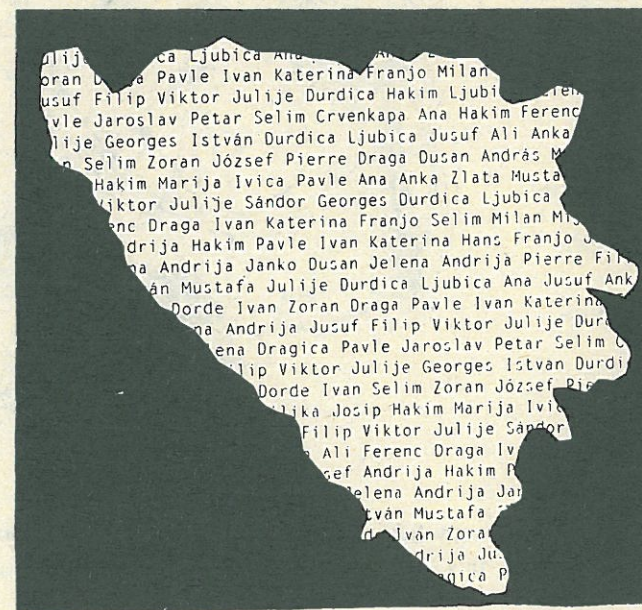 Ljubica
Pavle Ivan Katerina Franjo Milan
Filip Viktor Julije Durdica Hakim
Jaroslav Petar Selim Crvenkapa Ana Hakim Ferenc
Georges István Durdica Ljubica Jusuf Ali Anka
Selim Zoran József Pierre Draga Dusan András
Hakim Marija Ivica Pavle Ana Anka Zlata
Julije Sándor Georges Durdica Ljubica
Draga Ivan Katerina Franjo Selim Milan
Hakim Pavle Ivan Katerina Hans Franjo
Andrija Janko Dusan Jelena Andrija Pierre
Mustafa Julije Durdica Ljubica Ana Jusuf Ank
Dorde Ivan Zoran Draga Pavle Ivan Katerina
Andrija Jusuf Filip Viktor Julije
Dragica Pavle Jaroslav Petar Selim
Viktor Julije Georges Istvan Durdi
Dorde Ivan Selim Zoran József
Josip Hakim Marija
Filip Viktor Julije Sándor
Ali Ferenc Draga
Andrija Hakim
Jelena Andrija
Mustafa
Ivan